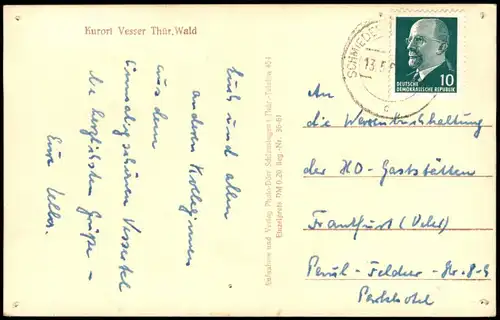 Kurort Vesser Thür. Wald
Euch und allen
andern Kolleginnen
aus dem
einmalig schönen Vessertal
die herzlichsten Grüße –
Eure
Aufnahme und Verlag Photo-Dörr Schleusingen (Thür.) Telefon 451
Einzelpreis DM 0.20 Reg.-Nr. 36-61
SCHMIEDEF
13.5.
c
DEUTSCHE
DEMOKRATISCHE REPUBLIK
10
An
die Warenbuchhaltung
der HO-Gaststätten
Frankfurt (Oder)
Paul-Feldner-Str. 8-9
Parkhotel